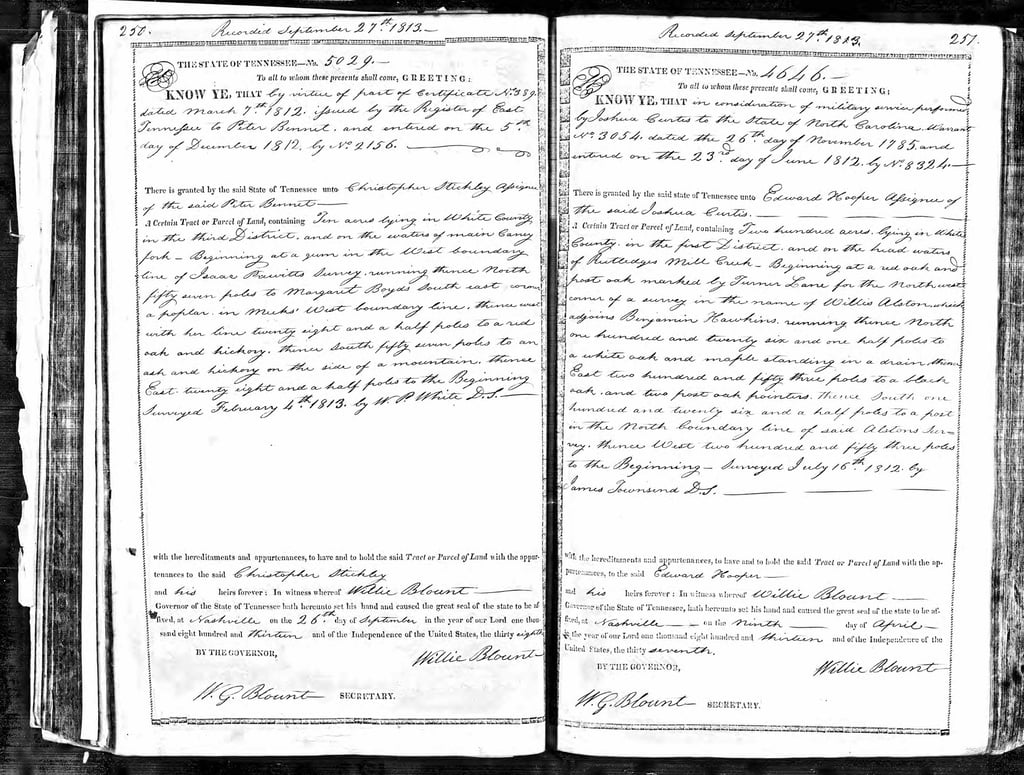 250.
Recorded September 27th 1813.—
THE STATE OF TENNESSEE—No. 5029.—
To all to whom these presents shall come, GREETING:
KNOW YE, THAT by virtue of part of Certificate No. 389
dated March 7th 1812. issued by the Register of East
Tennessee to Peter Bennet. and entered on the 5th
day of December 1812. by No. 2156.
There is granted by the said State of Tennessee unto Christopher Stickley Assignee
of the said Peter Bennet—
A Certain Tract or Parcel of Land, containing Ten acres lying in White County
in the third District. and on the waters of main Caney
fork — Beginning at a gum in the West boundary
line of Isaac survey. running thence North
fifty seven poles to Margaret Boyds South east corner
a poplar. in Meeks' West boundary line. thence west
with her line twenty eight and a half poles to a red
oak and hickory. thence South fifty seven poles to an
ash and hickory on the side of a mountain. thence
East twenty eight and a half poles to the Beginning
Surveyed February 4th 1813. by W. P. White D.S.—
with the hereditaments and appurtenances, to have and to hold the said Tract or Parcel of Land with the appur-
tenances to the said Christopher Stickley
and his heirs forever: In witness whereof Willie Blount—
Governor of the State of Tennessee hath hereunto set his hand and caused the great seal of the state to be af-
fixed, at Nashville on the 26th day of September in the year of our Lord one thou-
sand eight hundred and thirteen and of the Independence of the United States, the thirty eighth
BY THE GOVERNOR,
Willie Blount—
W. G. Blount SECRETARY.
Recorded September 27th 1813.
251.
THE STATE OF TENNESSEE—No. 4646.—
To all to whom these presents shall come, GREETING:
KNOW YE, THAT in consideration of military service performed
by Joshua Curtis to the State of North Carolina Warrant
No. 3054. dated the 26th day of November 1785. and
entered on the 23rd day of June 1812. by No. 8324—
There is granted by the said state of Tennessee unto Edward Hooper Assignee of
the said Joshua Curtis.
A Certain Tract or Parcel of Land, containing Two hundred acres. lying in White
County. in the first District. and on the head waters
of Rutledges Mill Creek — Beginning at a red oak and
post oak marked by Turner Lane for the North west
corner of a survey in the name of Willis Alston. which
adjoins Benjamin Hawkins. running thence North
one hundred and twenty six and one half poles to
a white oak and maple standing in a drain. thence
East two hundred and fifty three poles to a black
oak. and two post oak pointers. thence South one
hundred and twenty six and a half poles to a post
in the North boundary line of said Alstons Sur-
vey. thence West two hundred and fifty three poles
to the Beginning — Surveyed July 16th 1812. by
James Townsend D.S.
with the hereditaments and appurtenances, to have and to hold the said Tract or Parcel of Land with the ap-
purtenances, to the said Edward Hooper—
and his heirs forever: In witness whereof Willie Blount—
Governor of the State of Tennessee, hath hereunto set his hand and caused the great seal of the state to be af-
fixed, at Nashville — on the Ninth — day of April —
in the year of our Lord one thousand eight hundred and thirteen and of the Independence of the
United States, the thirty seventh.
BY THE GOVERNOR,
Willie Blount
W. G. Blount SECRETARY.